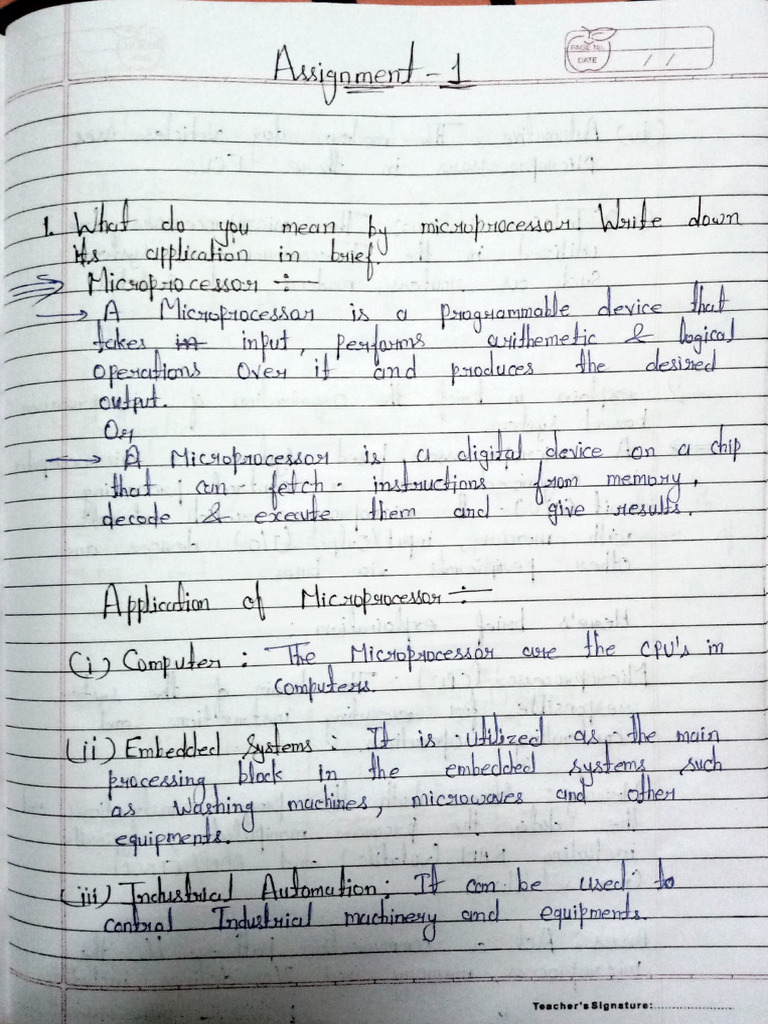 Assignment - 1
PAGE NO.
DATE / /
1. What do you mean by microprocessor. Write down
its application in brief.
Microprocessor :-
→ A Microprocessor is a programmable device that
takes in input, performs arithemetic & logical
operations over it and produces the desired
output.
Or
→ A Microprocessor is a digital device on a chip
that can fetch instructions from memory,
decode & execute them and give results.
Application of Microprocessor :-
(i) Computer : The Microprocessor are the CPU's in
computers.
(ii) Embedded Systems : It is utilized as the main
processing block in the embedded systems such
as washing machines, microwaves and other
equipments.
(iii) Industrial Automation : It can be used to
control Industrial machinery and equipments.
Teacher's Signature: